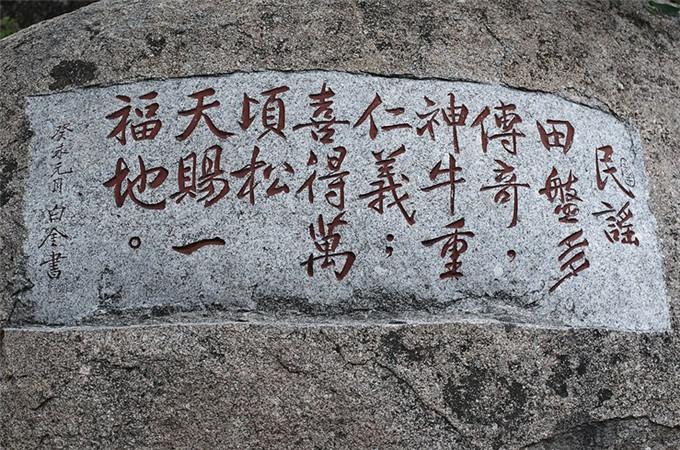 民謡
田盤多
傳奇，
神牛重
仁義；
喜得萬
頃松
天賜一
福地。
癸未元月 白金書